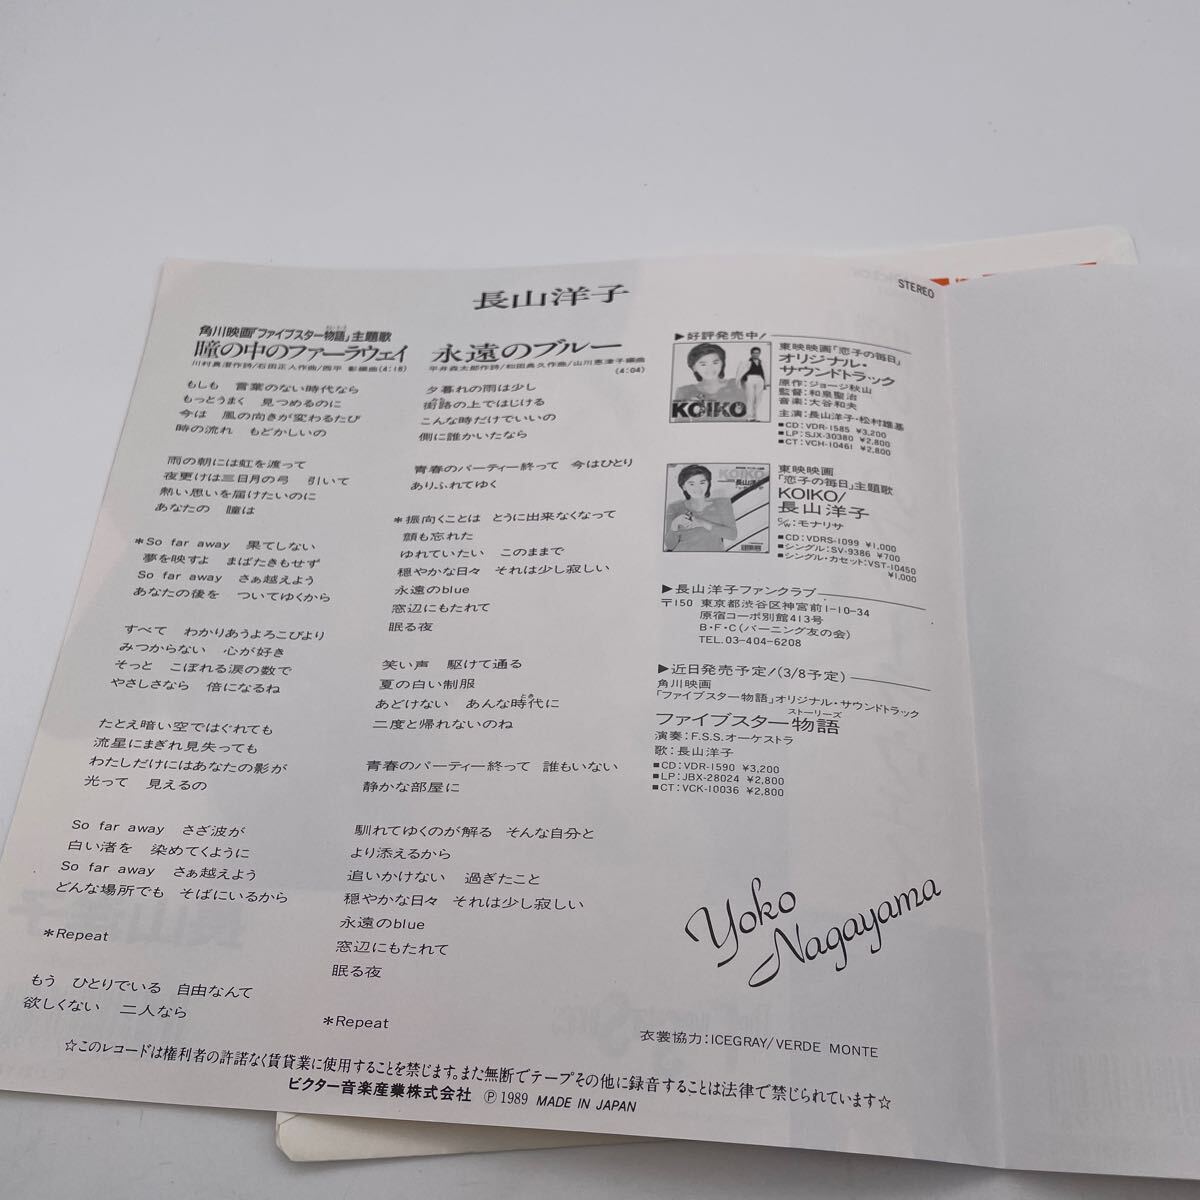 長山洋子
STEREO
角川映画「ファイブスター物語」主題歌
瞳の中のファーラウェイ
川村真澄作詩/石田正人作曲/西平 彰編曲(4:18)
もしも 言葉のない時代なら
もっとうまく 見つめるのに
今は 風の向きが変わるたび
時の流れ もどかしいの
雨の朝には虹を渡って
夜更けは三日月の弓 引いて
熱い思いを届けたいのに
あなたの 瞳は
*So far away 果てしない
夢を映すよ まばたきもせず
So far away さぁ越えよう
あなたの後を ついてゆくから
すべて わかりあうよろこびより
みつからない 心が好き
そっと こぼれる涙の数で
やさしさなら 倍になるね
たとえ暗い空ではぐれても
流星にまぎれ見失っても
わたしだけにはあなたの影が
光って 見えるの
So far away さざ波が
白い渚を 染めてくように
So far away さぁ越えよう
どんな場所でも そばにいるから
*Repeat
もう ひとりでいる 自由なんて
欲しくない 二人なら
永遠のブルー
平井森太郎作詩/和田典久作曲/山川恵津子編曲
(4:04)
夕暮れの雨は少し
街路の上ではじける
こんな時だけでいいの
側に誰かいたなら
青春のパーティー終って 今はひとり
ありふれてゆく
*振向くことは とうに出来なくなって
顔も忘れた
ゆれていたい このままで
穏やかな日々 それは少し寂しい
永遠のblue
窓辺にもたれて
眠る夜
笑い声 駆けて通る
夏の白い制服
あどけない あんな時代に
二度と帰れないのね
青春のパーティー終って 誰もいない
静かな部屋に
馴れてゆくのが解る そんな自分と
より添えるから
追いかけない 過ぎたこと
穏やかな日々 それは少し寂しい
永遠のblue
窓辺にもたれて
眠る夜
*Repeat
▶好評発売中!
KOIKO
東映映画「恋子の毎日」
オリジナル・
サウンドトラック
原作:ジョージ秋山
監督:和泉聖治
音楽:大谷和夫
主演:長山洋子・松村雄基
■CD:VDR-1585 ¥3,200
■LP:SJX-30380 ¥2,800
■CT:VCH-10461 ¥2,800
KOIKO
長山洋子
東映映画
「恋子の毎日」主題歌
KOIKO/
長山洋子
C/W:モナリサ
■CD:VDRS-1099 ¥1,000
■シングル:SV-9386 ¥700
■シングル・カセット:VST-10450
¥1,000
▶長山洋子ファンクラブ
〒150 東京都渋谷区神宮前1-10-34
原宿コーポ別館413号
B・F・C(バーニング友の会)
TEL.03-404-6208
▶近日発売予定!(3/8予定)
角川映画
「ファイブスター物語」オリジナル・サウンドトラック
ストーリーズ
ファイブスター物語
演奏:F.S.S.オーケストラ
歌:長山洋子
■CD:VDR-1590 ¥3,200
■LP:JBX-28024 ¥2,800
■CT:VCK-10036 ¥2,800
Yoko
Nagayama
衣裳協力:ICEGRAY/VERDE MONTE
☆このレコードは権利者の許諾なく賃貸業に使用することを禁じます。また無断でテープその他に録音することは法律で禁じられています☆
ビクター音楽産業株式会社 Ⓟ1989 MADE IN JAPAN